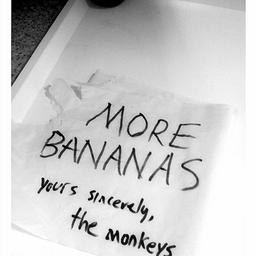 MORE
BANANAS
yours sincerely,
the monkeys